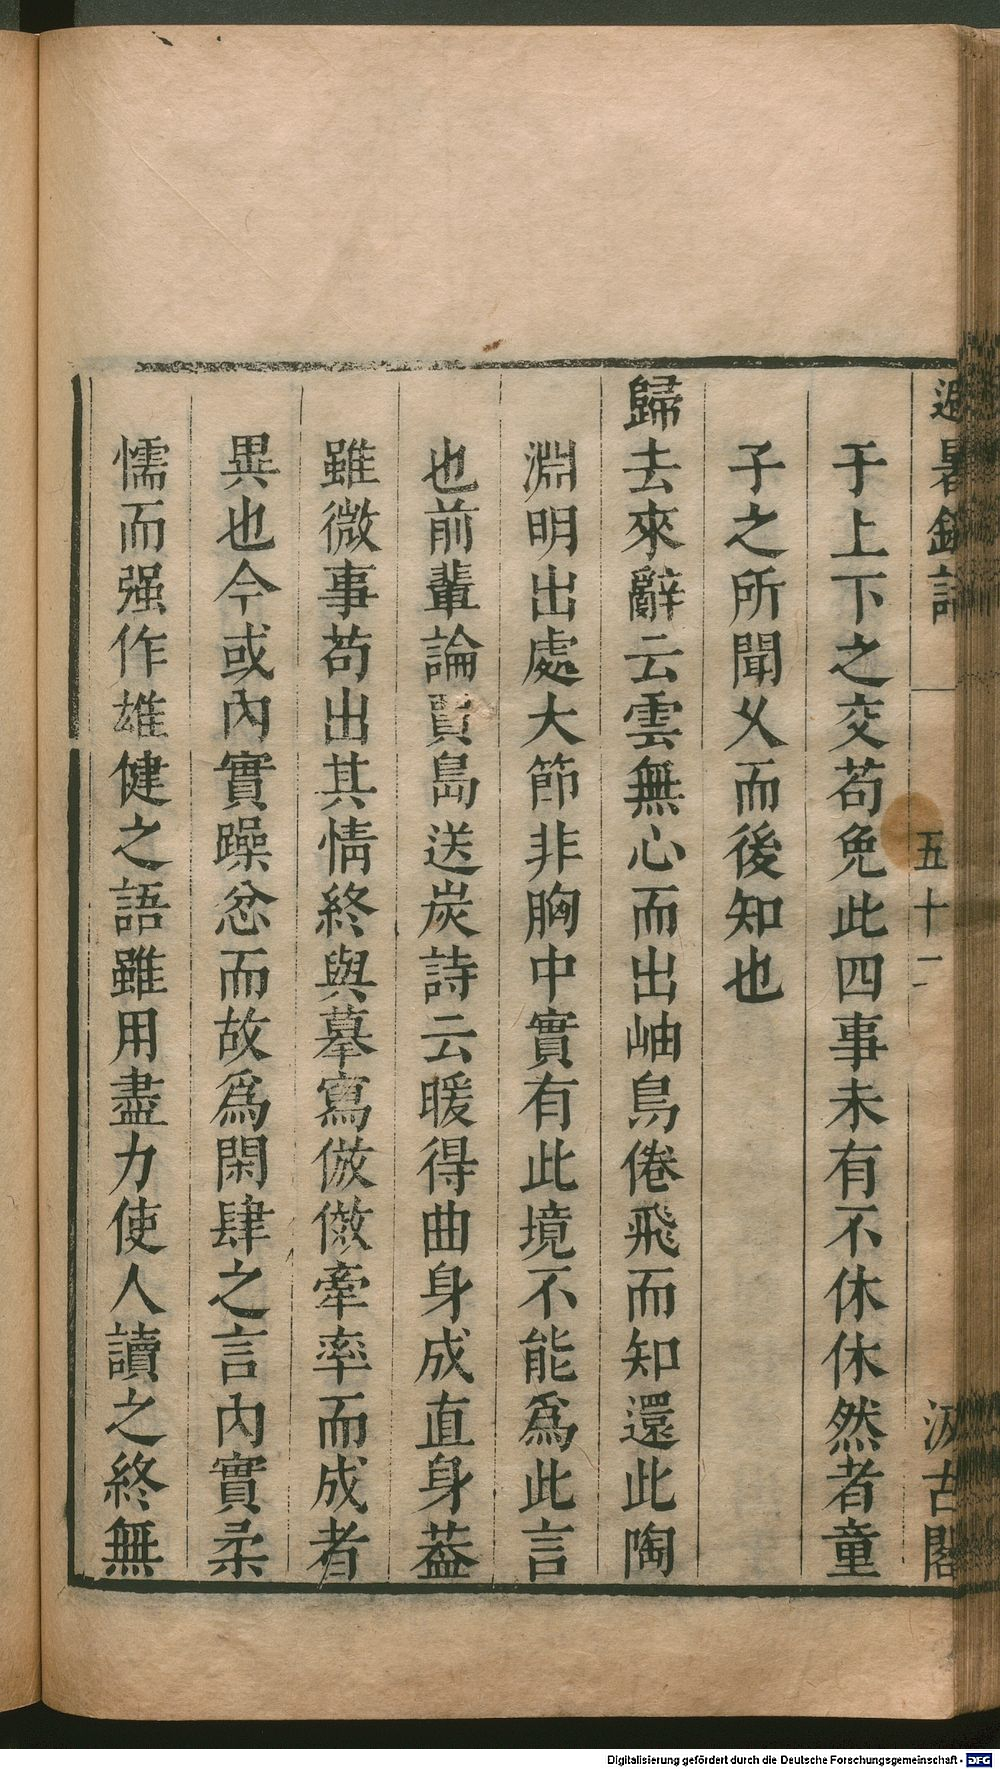 避暑錄話
五十二
汲古閣
于上下之交苟免此四事未有不休休然者童
子之所聞乂而後知也
歸去來辭云雲無心而出岫鳥倦飛而知還此陶
淵明出處大節非胸中實有此境不能爲此言
也前輩論賈島送炭詩云暖得曲身成直身葢
雖微事苟出其情終與摹寫倣傚牽率而成者
異也今或內實躁忿而故爲閑肆之言內實柔
懦而强作雄健之語雖用盡力使人讀之終無
Digitalisierung gefördert durch die Deutsche Forschungsgemeinschaft - DFG